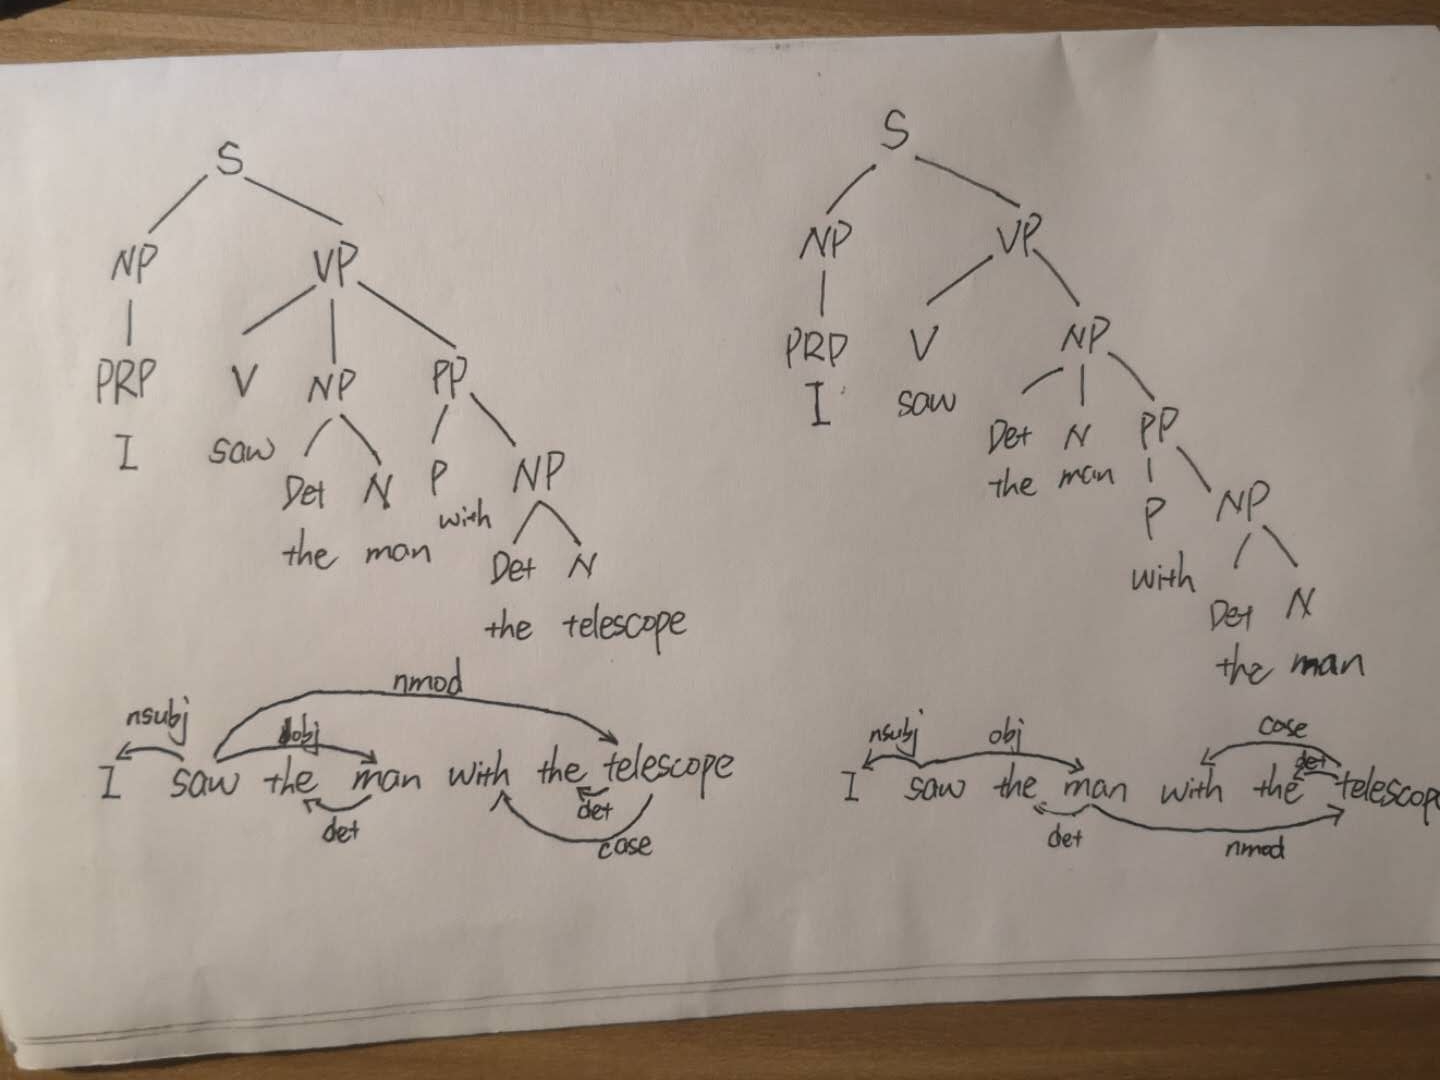 S
NP VP
PRP V NP PP
I saw Det N P NP
the man with Det N
the telescope
nmod
nsubj dobj
I saw the man with the telescope
det det case
S
NP VP
PRP V NP
I saw Det N PP
the man P NP
with Det N
the man
nsubj obj case det
I saw the man with the telescope
det nmod